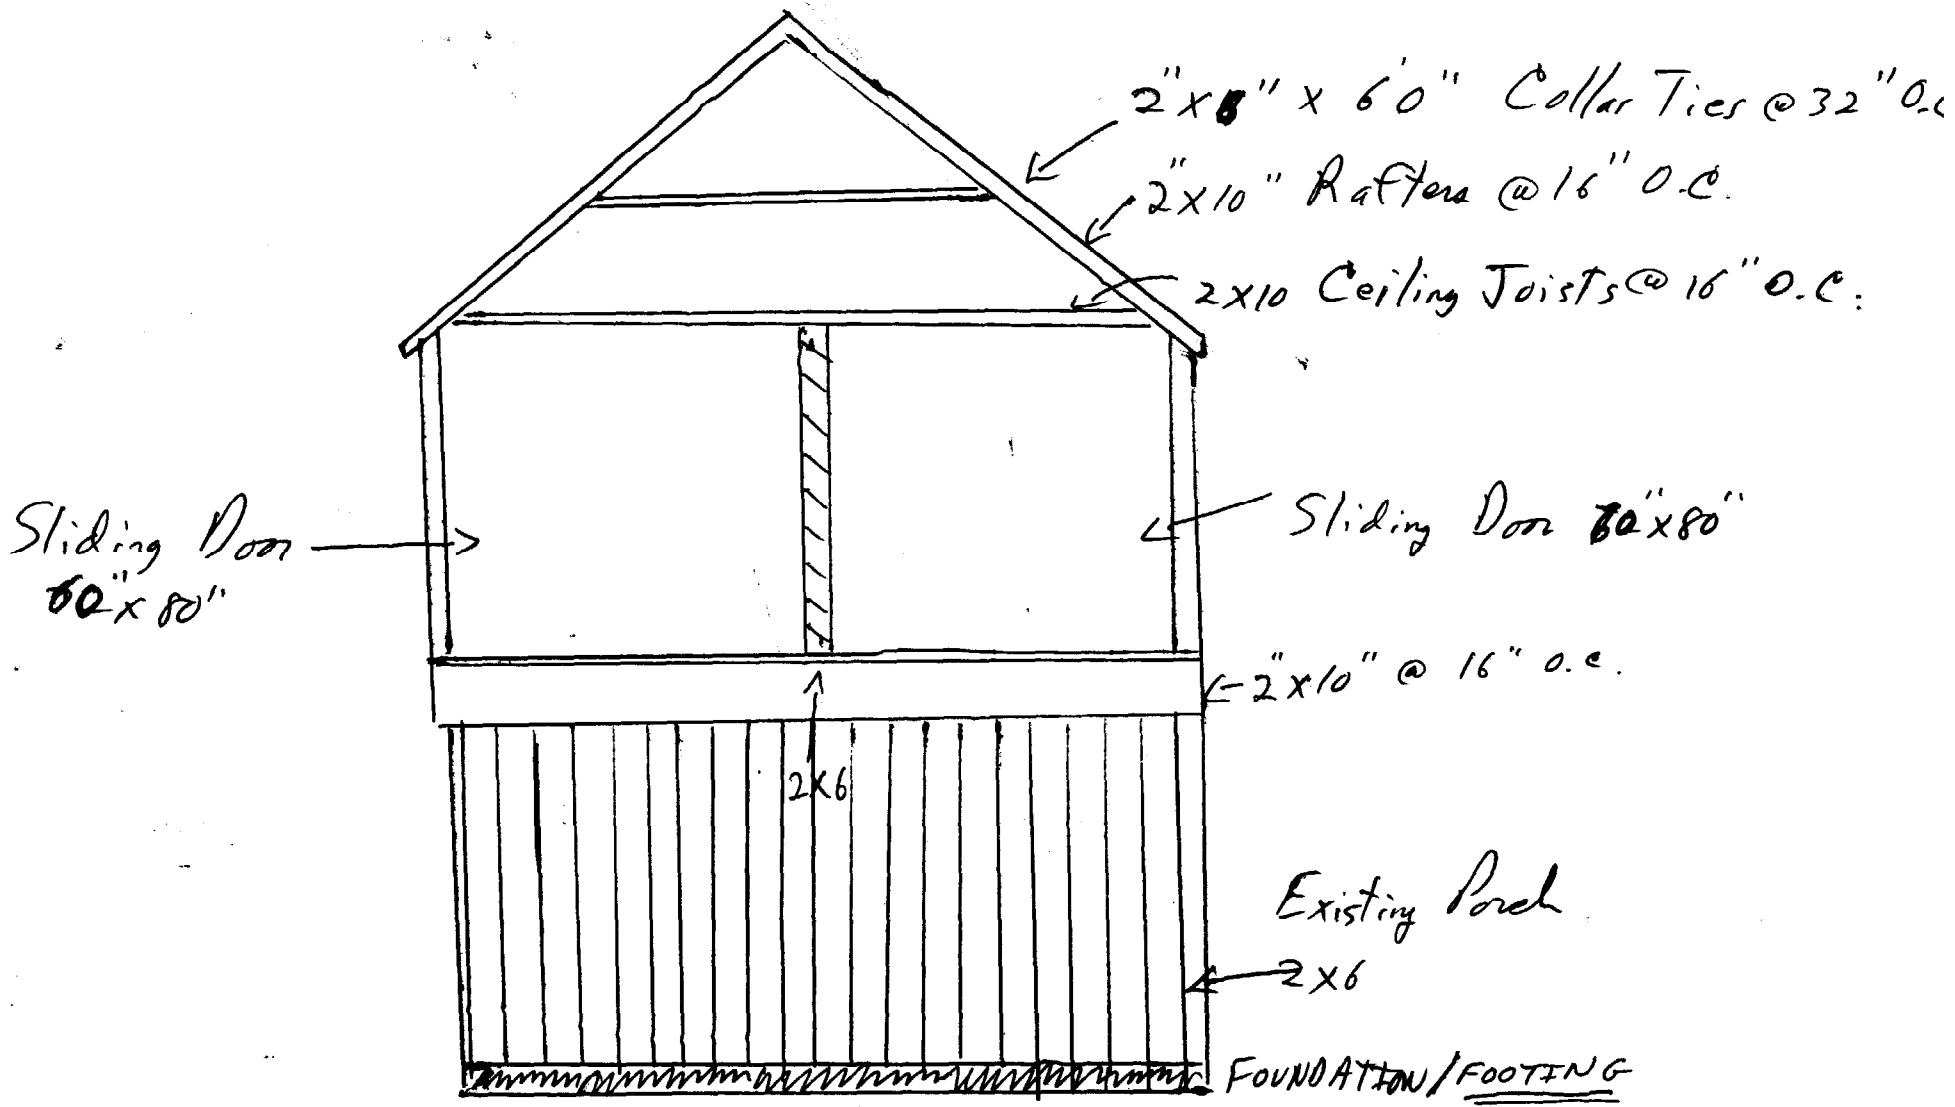 2"x8" x 6'0" Collar Ties @ 32" O.C
2"x10" Rafters @ 16" O.C.
2x10 Ceiling Joists @ 16" O.C.
Sliding Door
60"x80"
Sliding Door 60"x80"
2"x10" @ 16" O.C.
2x6
Existing Porch
2x6
FOUNDATION/FOOTING